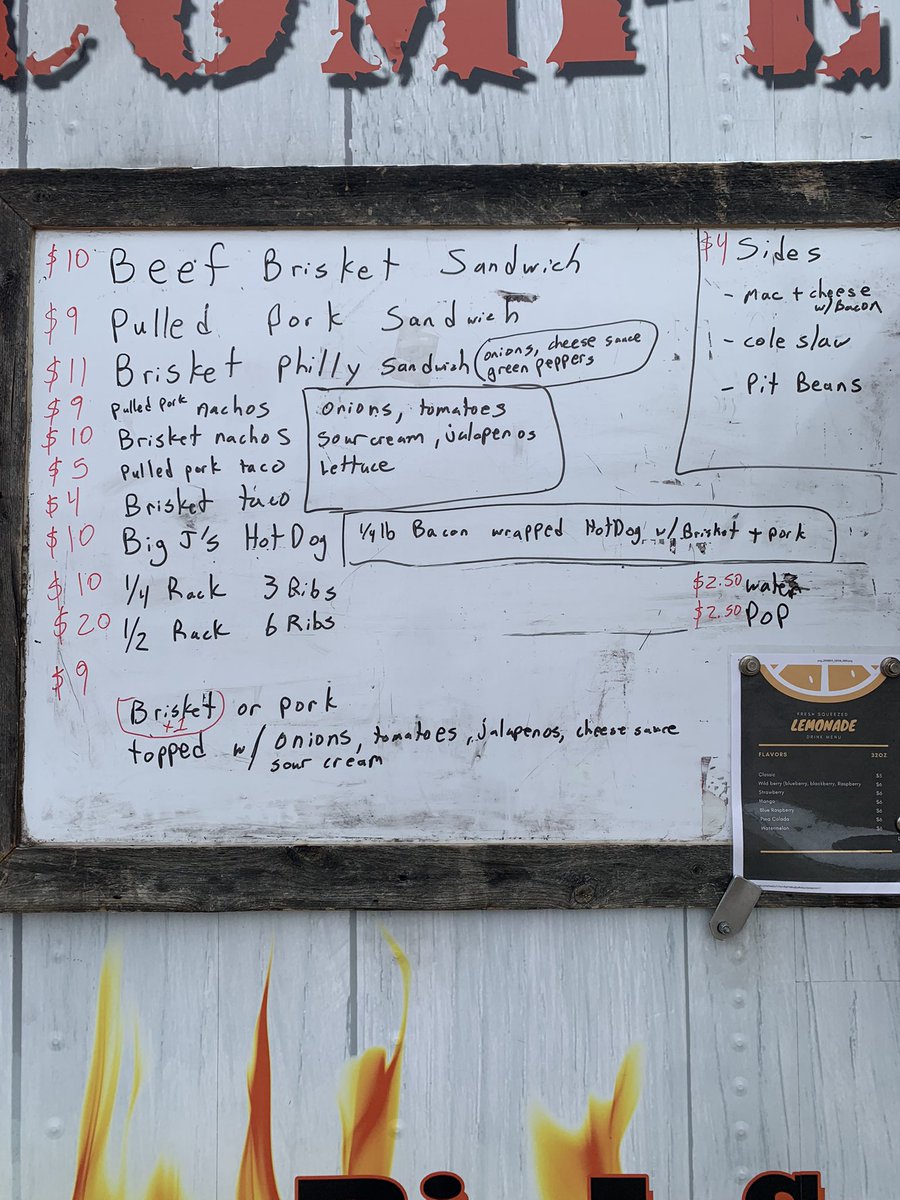 $10 Beef Brisket Sandwich
$9 Pulled Pork Sandwich
$11 Brisket Philly Sandwich
onions, cheese sauce
green peppers
$9 Pulled pork nachos
$10 Brisket nachos
$5 Pulled pork taco
$4 Brisket taco
onions, tomatoes
sour cream, jalapenos
Lettuce
$10 Big J's HotDog
1/4 lb Bacon wrapped HotDog w/ Brisket + pork
$10 1/4 Rack 3 Ribs
$20 1/2 Rack 6 Ribs
$9
Brisket or pork
+1
topped w/ onions, tomatoes, jalapenos, cheese sauce
sour cream
$4 Sides
- Mac + cheese
w/ Bacon
- cole slaw
- Pit Beans
$2.50 water
$2.50 POP
FRESH SQUEEZED
LEMONADE
DRINK MENU
FLAVORS 32OZ
Classic $5
Wild berry (blueberry, blackberry, Raspberry $6
Strawberry $6
Mango $6
Blue Raspberry $6
Pina Colada $6
Watermelon $6